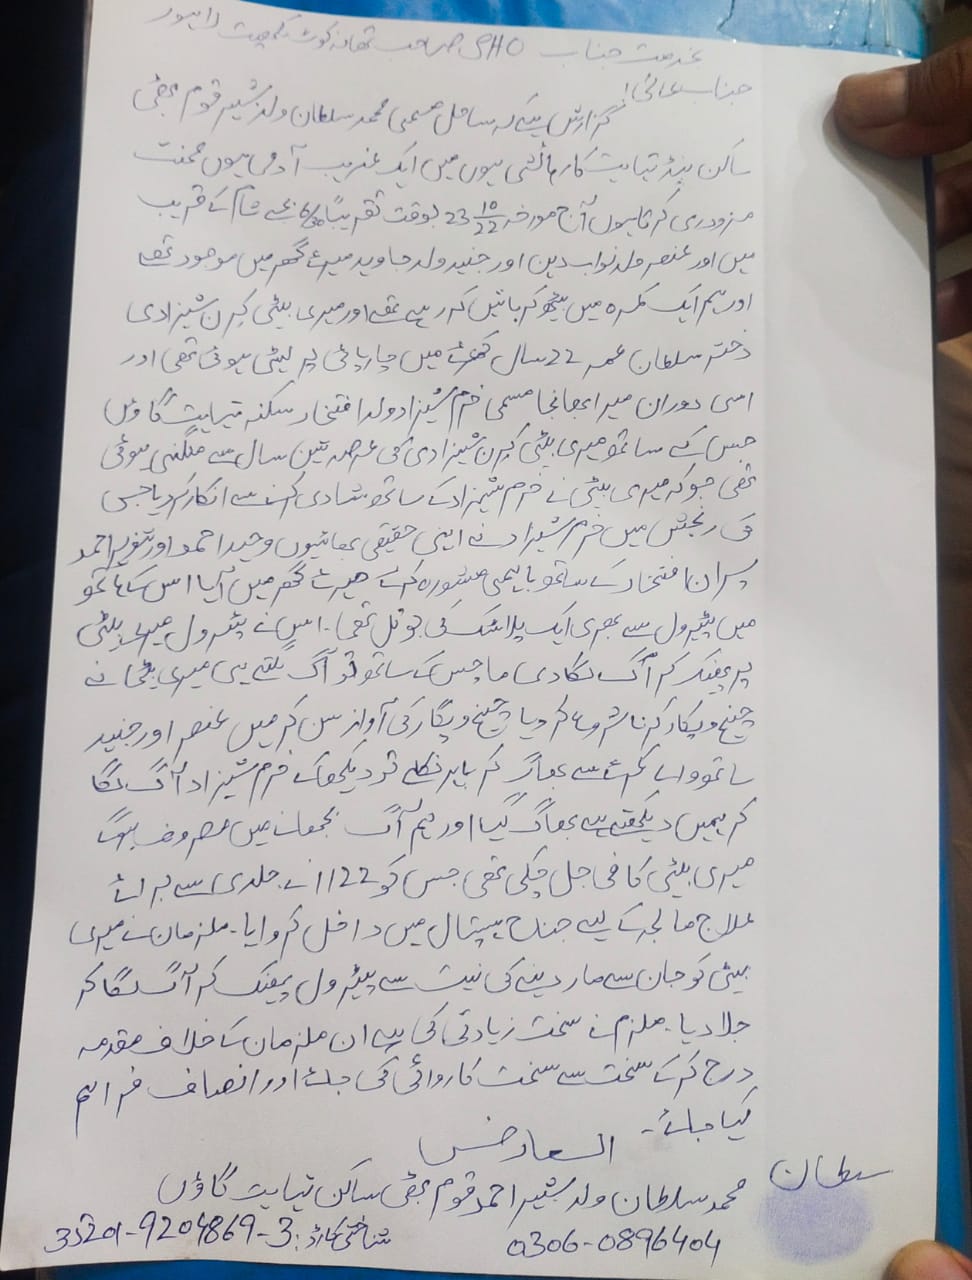 بخدمت جناب SHO صاحب تھانہ کوٹ لکھپت لاہور
جناب عالی!
گزارش ہے کہ سائل مسمی محمد سلطان ولد بشیر قوم بھٹی
ساکن پنڈ تہایت کا رہائشی ہوں میں ایک غریب آدمی ہوں محنت
مزدوری کرتا ہوں آج مورخہ 23 10/22 بوقت تقریباً بجے شام کے قریب
میں اور عنصر ولد نواب دین اور جنید ولد جاوید میرے گھر میں موجود تھے
اور ہم ایک کمرہ میں بیٹھ کر باتیں کر رہے تھے اور میری بیٹی کرن شہزادی
دختر سلطان عمر 22 سال کمرے میں چارپائی پر لیٹی ہوئی تھی اور
اسی دوران میرا بھانجا مسمی خرم شہزاد ولد افتخار سکنہ تہایت گاؤں
جس کے ساتھ میری بیٹی کرن شہزادی کی عرصہ تین سال سے منگنی ہوئی
تھی جو کہ میری بیٹی نے خرم شہزاد کے ساتھ شادی کرنے سے انکار کر دیا جس
کی رنجش میں خرم شہزاد نے اپنی حقیقی بھائیوں وحید احمد اور تنویر احمد
پسران افتخار کے ساتھ باہمی مشورہ کر کے میرے گھر میں آیا اس کے ہاتھ
میں پٹرول سے بھری ایک پلاسٹک کی بوتل تھی۔ اس نے پٹرول میری بیٹی
پر پھینک کر آگ لگا دی ماچس کے ساتھ تو آگ لگتے ہی میری بیٹی نے
چیخ و پکار کرنا شروع کر دیا چیخ و پکار کی آواز سن کر میں عنصر اور جنید
ساتھ والے کمرے سے بھاگ کر باہر نکلے تو دیکھا کہ خرم شہزاد آگ لگا
کر ہمیں دیکھتے ہی بھاگ گیا اور ہم آگ بجھانے میں مصروف ہو گئے
میری بیٹی کافی جل چکی تھی جس کو 1122 نے جلدی سے برائے
علاج معالجہ کے لیے جناح ہسپتال میں داخل کروایا۔ ملزمان نے میری
بیٹی کو جان سے مار دینے کی نیت سے پیٹرول پھینک کر آگ لگا کر
جلا دیا۔ ملزم نے سخت زیادتی کی ہے ان ملزمان کے خلاف مقدمہ
درج کر کے سخت سے سخت کاروائی کی جائے اور انصاف فراہم
کیا جائے۔
العارض
سلطان
محمد سلطان ولد بشیر احمد قوم بھٹی ساکن تہایت گاؤں
0306-0896404 شناختی کارڈ: 35201-9204869-3